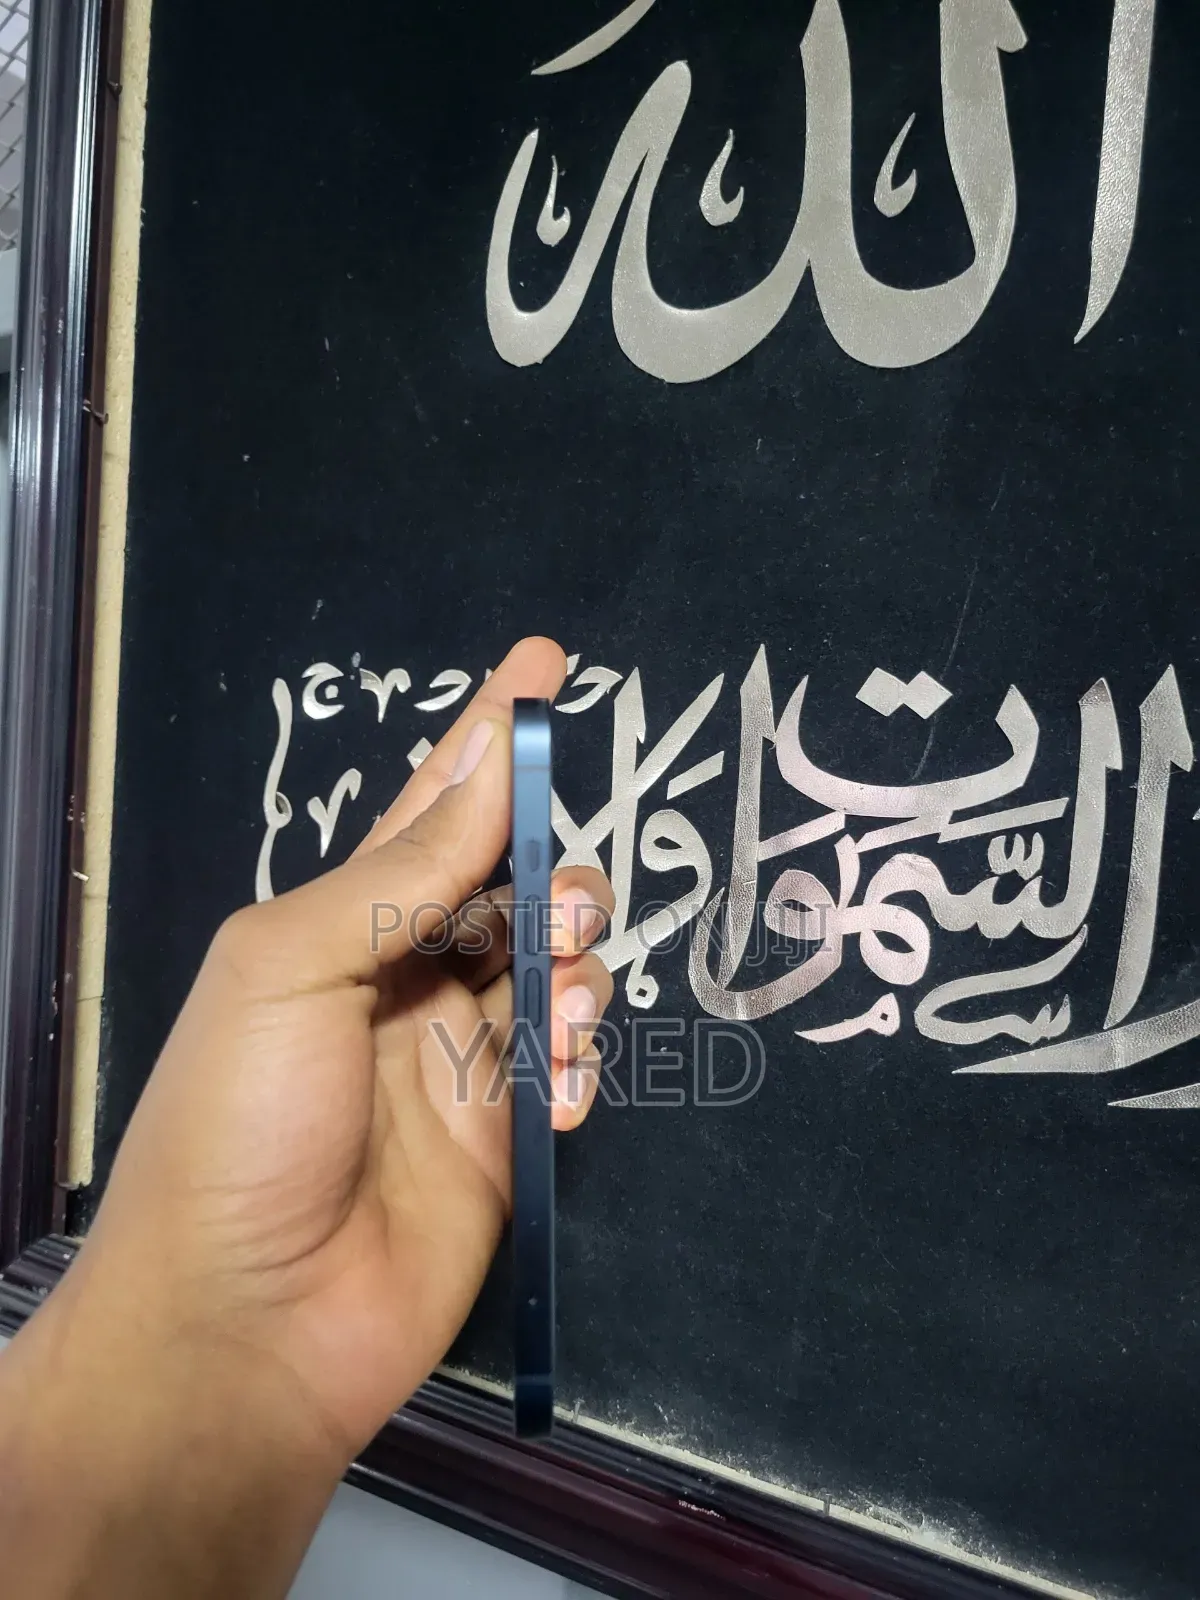 الله
السموات والا
POSTED ON JIJI
YARED